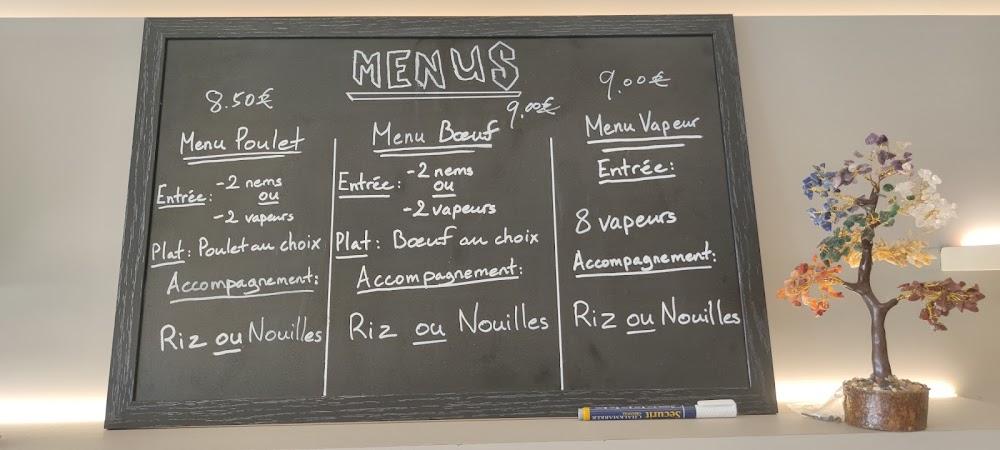 MENUS
8.50€
Menu Poulet
Entrée: -2 nems
ou
-2 vapeurs
Plat: Poulet au choix
Accompagnement:
Riz ou Nouilles
9,00€
Menu Bœuf
Entrée: -2 nems
ou
-2 vapeurs
Plat: Bœuf au choix
Accompagnement:
Riz ou Nouilles
9.00€
Menu Vapeur
Entrée:
8 vapeurs
Accompagnement:
Riz ou Nouilles
Securit